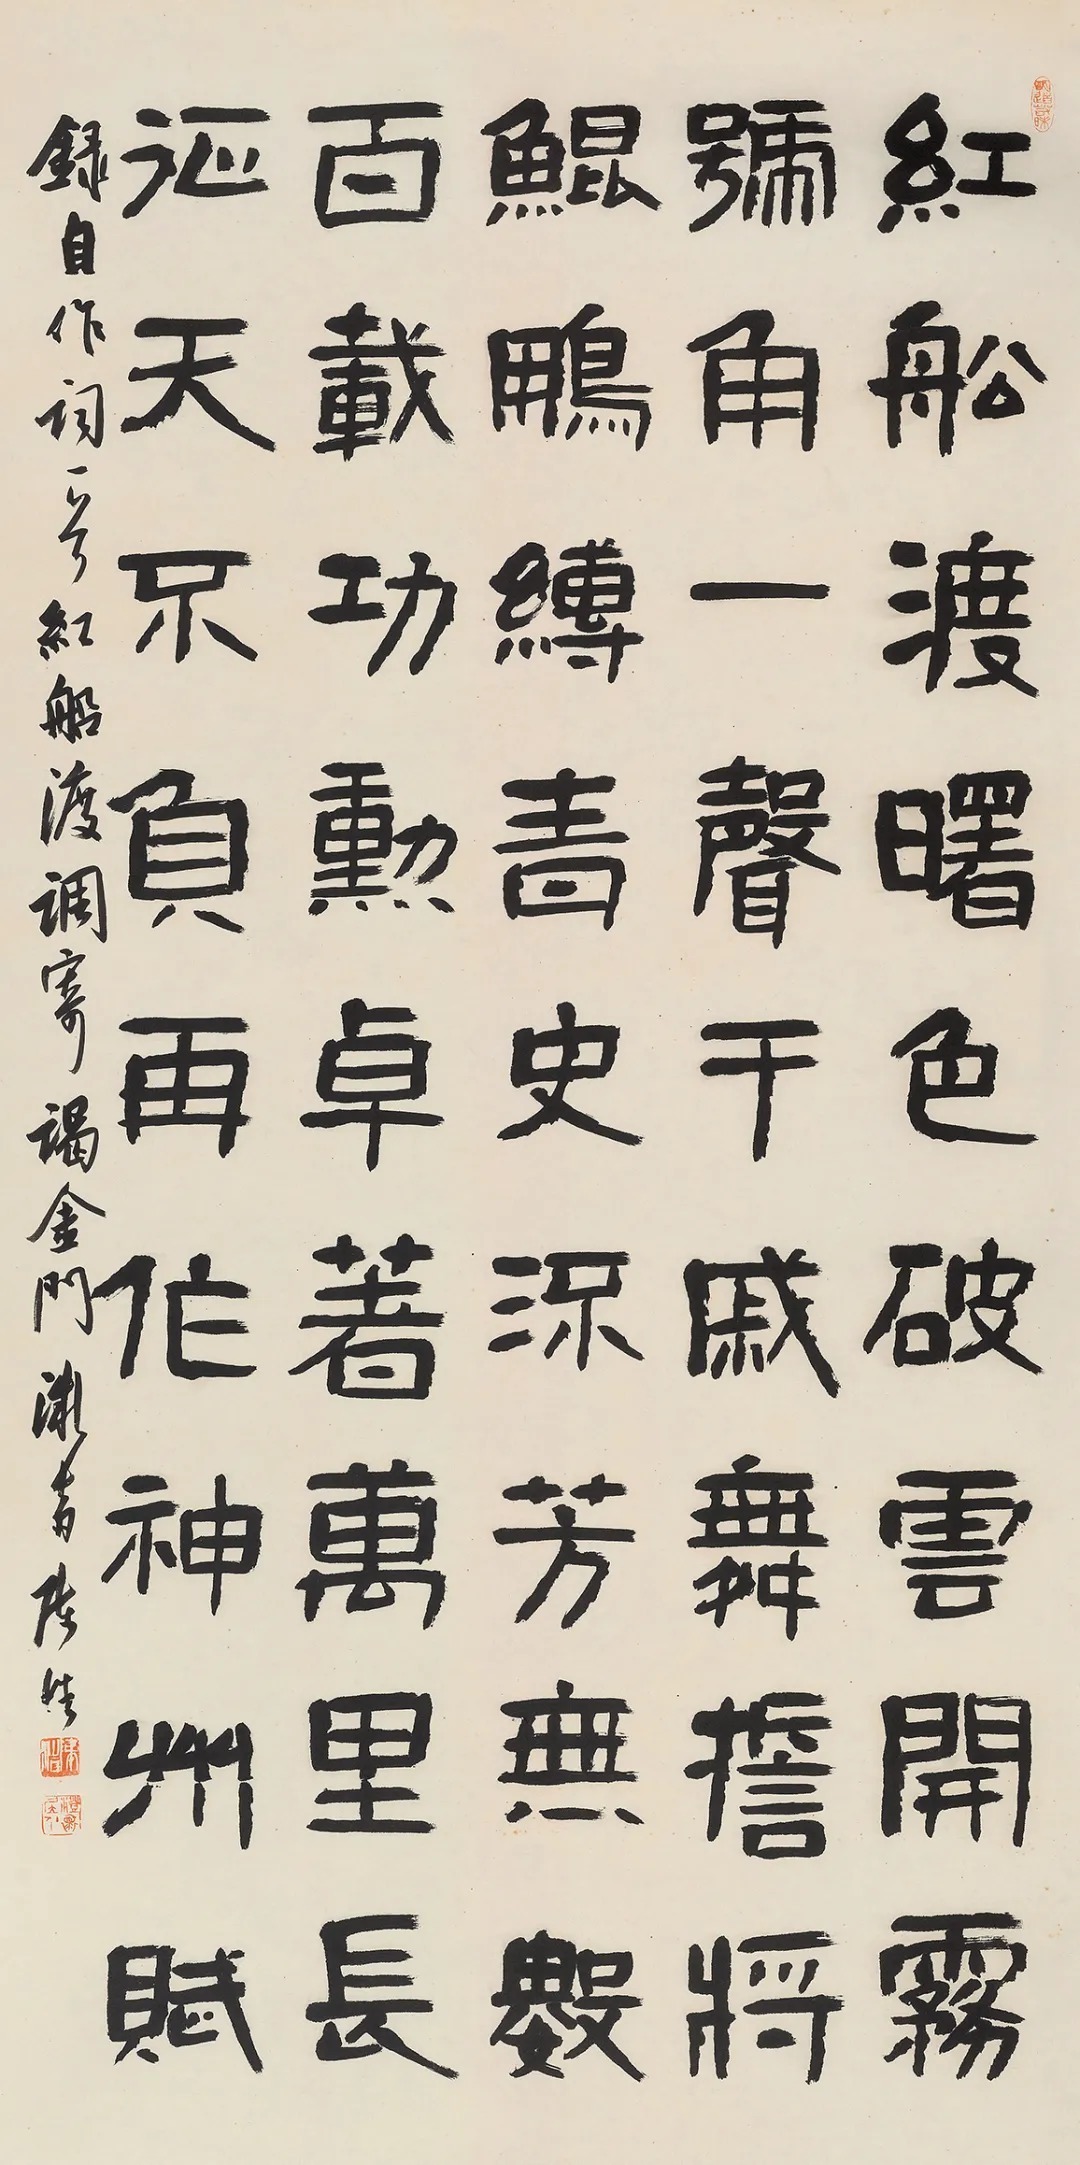 紅船渡曙色破雲開霧
號角一聲干戚舞擔將
鯤鵬縛青史流芳無數
百載功勳卓著萬里長
征天不負再作神州賦
録自作词一首紅船渡调寄謁金門